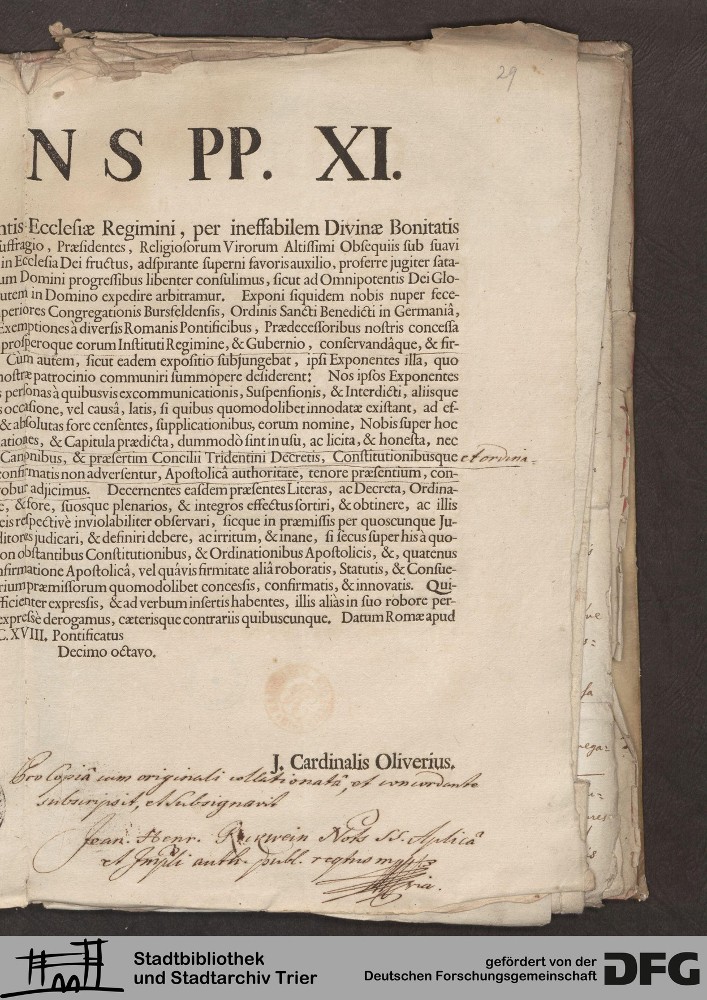 29
NS PP. XI.
ntis Ecclesiæ Regimini, per ineffabilem Divinæ Bonitatis
uffragio, Præsidentes, Religiosorum Virorum Altissimi Obsequiis sub suavi
in Ecclesia Dei fructus, adspirante superni favoris auxilio, proferre jugiter sata-
um Domini progressibus libenter consulimus, sicut ad Omnipotentis Dei Glo-
utem in Domino expedire arbitramur. Exponi siquidem nobis nuper fece-
periores Congregationis Bursfeldensis, Ordinis Sancti Benedicti in Germaniâ,
Exemptiones à diversis Romanis Pontificibus, Prædecessoribus nostris concessa
prosperoque eorum Instituti Regimine, & Gubernio, conservandâque, & fir-
Cùm autem, sicut eadem expositio subjungebat, ipsi Exponentes illa, quo
nostræ patrocinio communiri summopere desiderent: Nos ipsos Exponentes
s personas à quibusvis excommunicationis, Suspensionis, & Interdicti, aliisque
s occasione, vel causâ, latis, si quibus quomodolibet innodatæ existant, ad ef-
& absolutas fore censentes, supplicationibus, eorum nomine, Nobis super hoc
ationes, & Capitula prædicta, dummodò sint in usu, ac licita, & honesta, nec
Canonibus, & præsertim Concilii Tridentini Decretis, Constitutionibusque et ordina=
confirmatis non adversentur, Apostolicâ authoritate, tenore præsentium, con-
robur adjicimus. Decernentes easdem præsentes Literas, ac Decreta, Ordina-
e, & fore, suosque plenarios, & integros effectus sortiri, & obtinere, ac illis
eis respectivè inviolabiliter observari, sicque in præmissis per quoscunque Ju-
ditores judicari, & definiri debere, ac irritum, & inane, si secus super his à quo-
on obstantibus Constitutionibus, & Ordinationibus Apostolicis, &, quatenus
nfirmatione Apostolicâ, vel quâvis firmitate aliâ roboratis, Statutis, & Consue-
rium præmissorum quomodolibet concessis, confirmatis, & innovatis. Qui-
fficienter expressis, & ad verbum insertis habentes, illis aliàs in suo robore per-
expressè derogamus, cæterisque contrariis quibuscunque. Datum Romæ apud
C. XVIII. Pontificatus
Decimo octavo.
J. Cardinalis Oliverius.
Pro Copiâ cum originali collationatâ, et concordante
subscripsit, et subsignavit
Joan. Henr. Nots SS. Aplicâ
et Impli auth. publ.
Stadtbibliothek
und Stadtarchiv Trier
gefördert von der
Deutschen Forschungsgemeinschaft
DFG